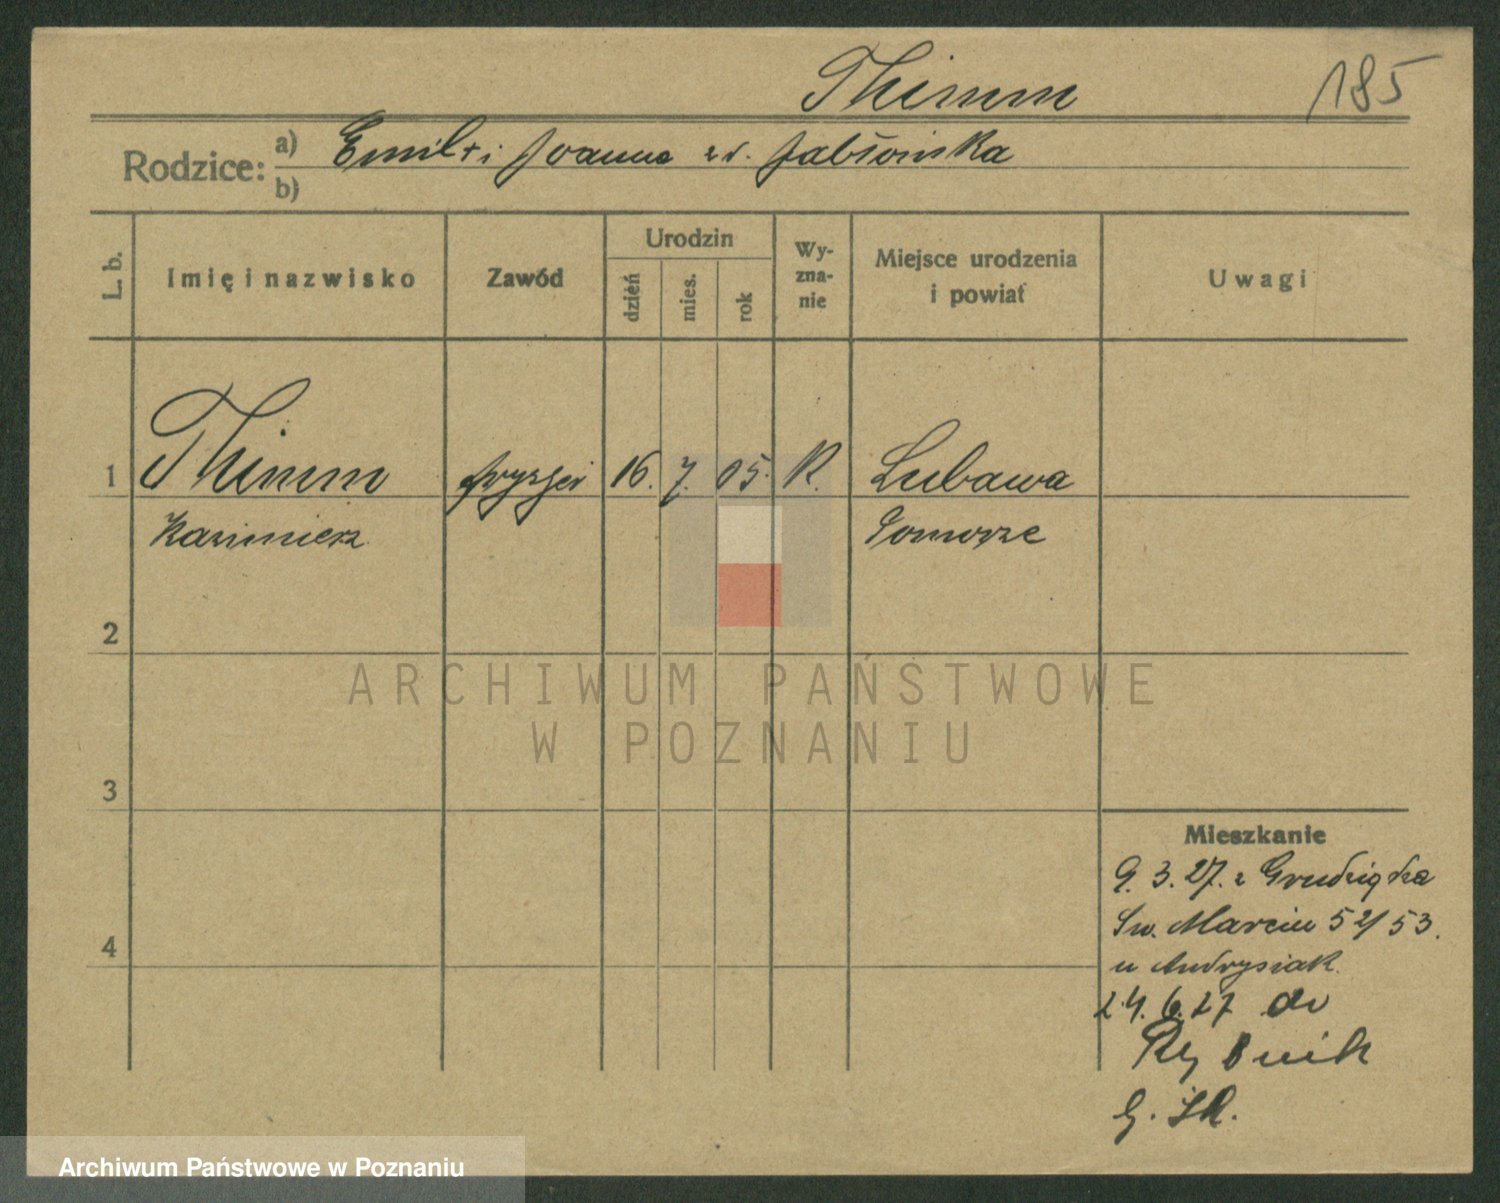 Thimm
185
Rodzice: a) Emil + i Joanna z d. Jabłońska
b)
L. b.
Imię i nazwisko
Zawód
Urodzin
dzień
mies.
rok
Wy-
zna-
nie
Miejsce urodzenia
i powiat
Uwagi
1 Thimm fryzjer 16. 7. 05. K. Lubawa
Kazimierz Pomorze
2
3
4
ARCHIWUM PAŃSTWOWE
W POZNANIU
Mieszkanie
9. 3. 27. z Grudziądza
Św. Marcin 52/53.
u Andrysiak
24. 6. 27 do
Rybnik
G. Śl.
Archiwum Państwowe w Poznaniu